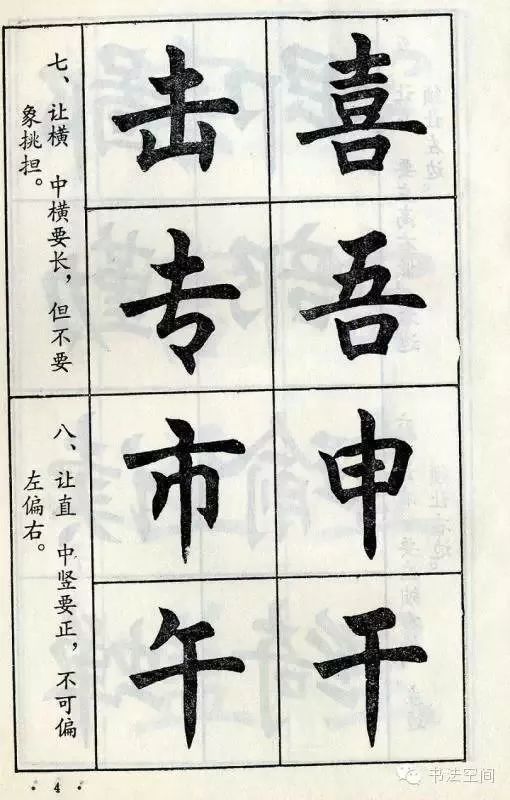 七、让横 中横要长，但不要
象挑担。
击 喜
专 吾
八、让直 中竖要正，不可偏
左偏右。
市 申
午 干
·4·
书法空间